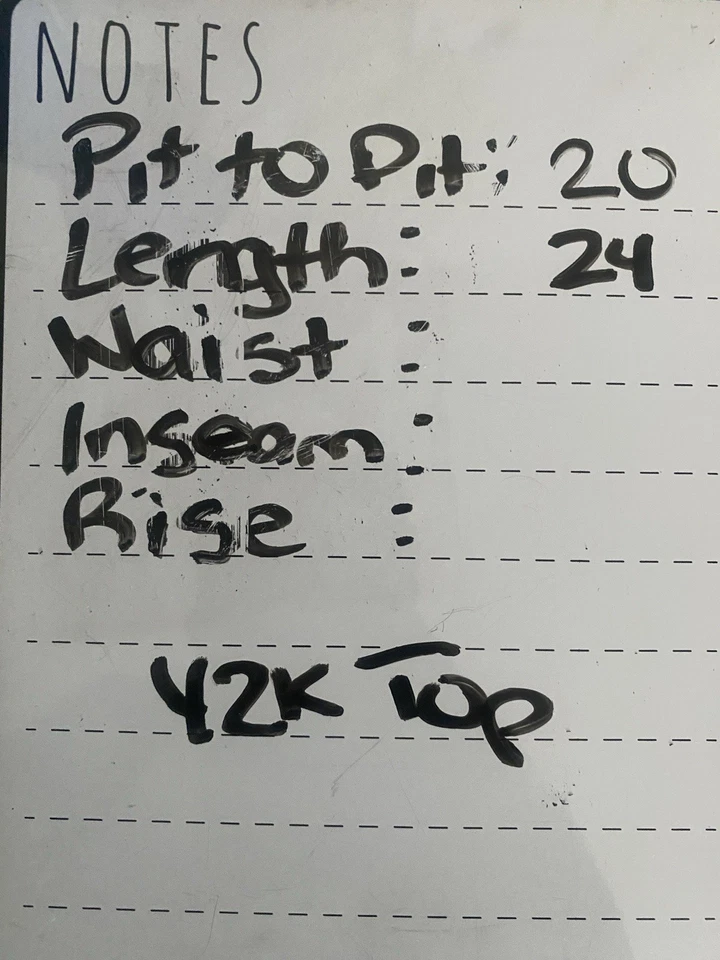 NOTES
Pit to Pit: 20
Length: 24
Waist:
Inseam:
Rise:
Y2K Top